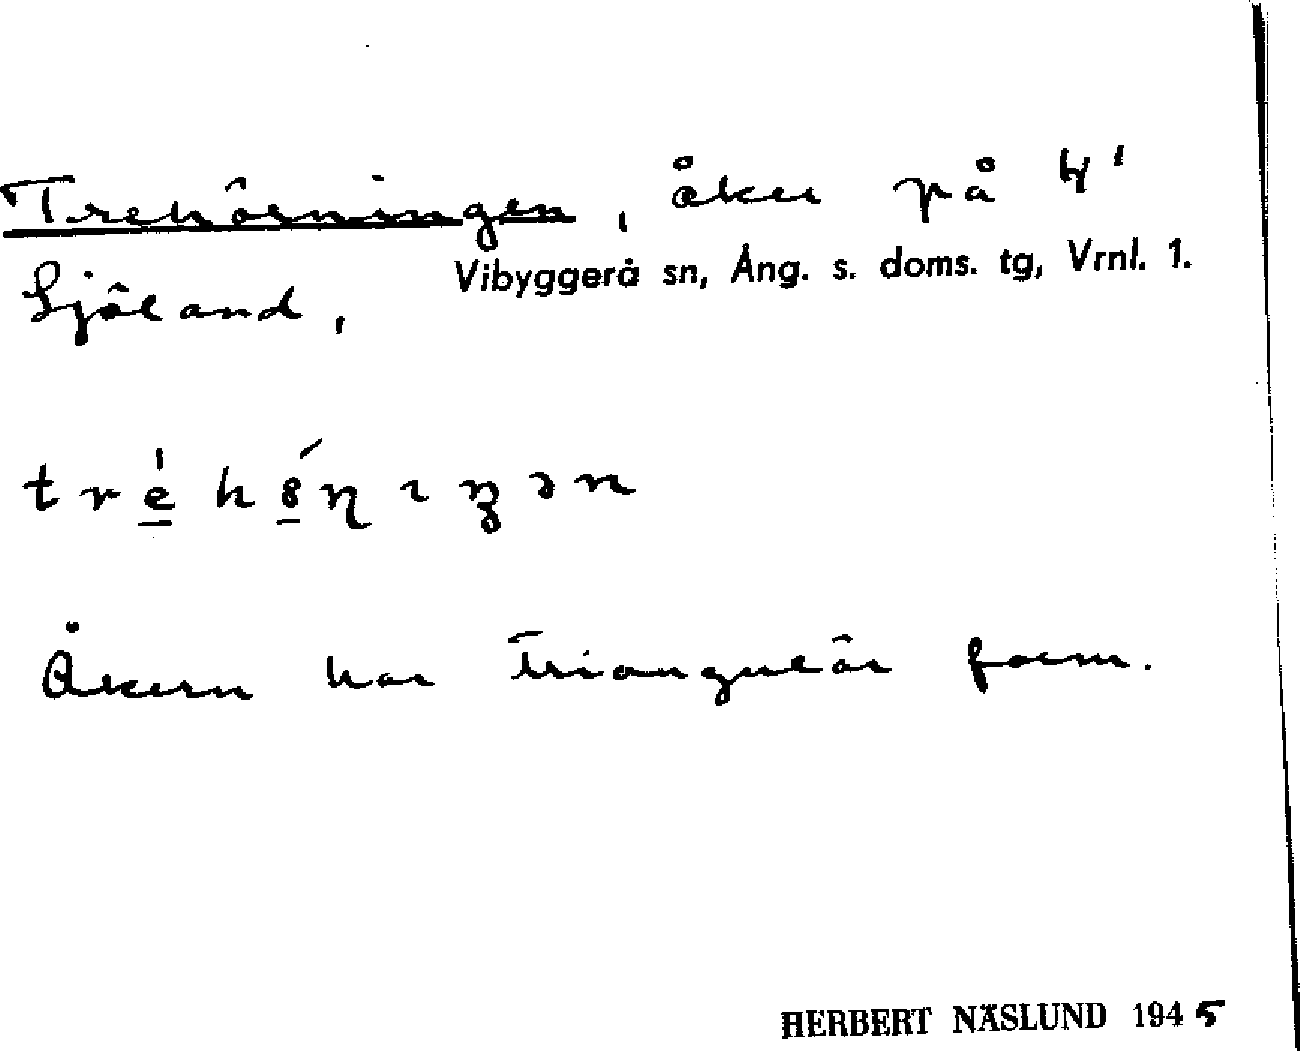 Trehörningen, åker på 4¹
Vibyggerå sn, Ång. s. doms. tg, Vrnl. 1.
Själand,
Åkern har triangulär form.
HERBERT NÄSLUND 1945